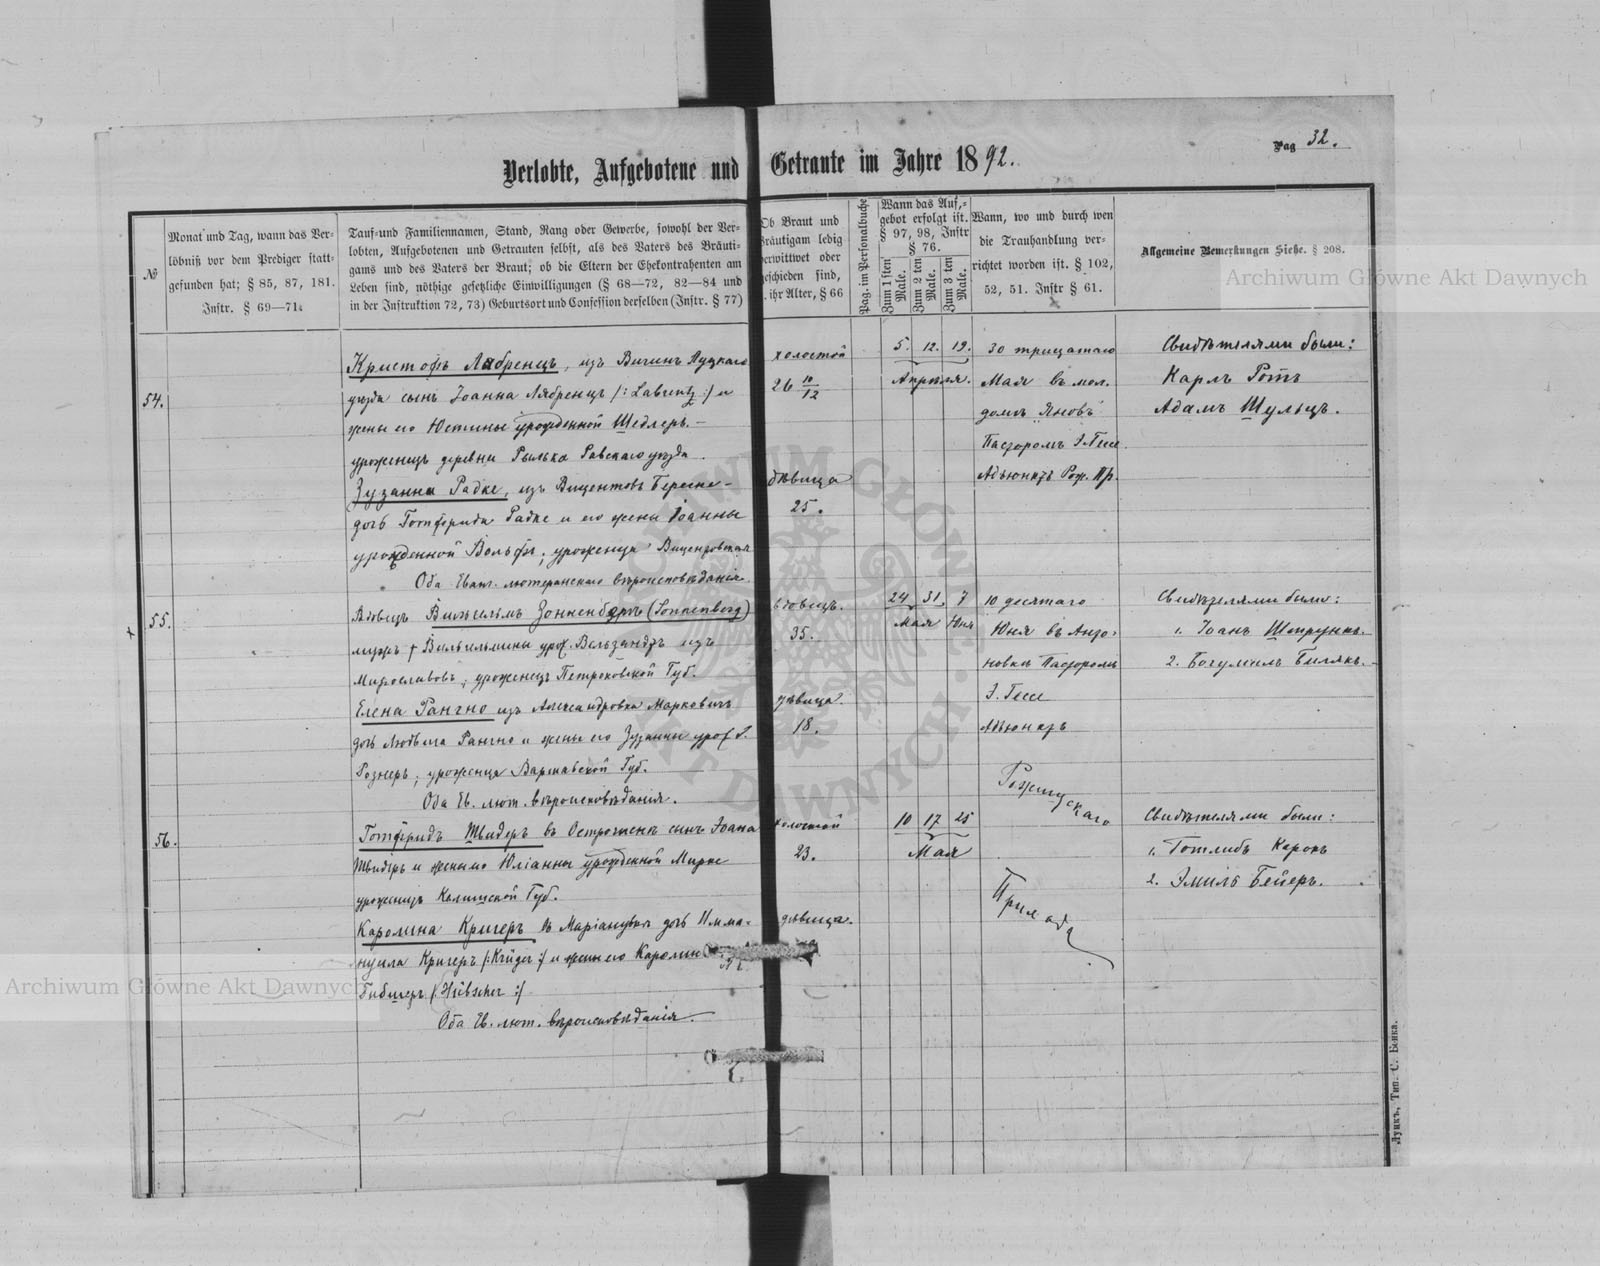 Pag 32.
Verlobte, Aufgebotene und Getraute im Jahre 1892.
№
Monat und Tag, wann das Ver-
löbniß vor dem Prediger statt-
gefunden hat; § 85, 87, 181.
Instr. § 69—71.
Tauf-und Familiennamen, Stand, Rang oder Gewerbe, sowohl der Ver-
lobten, Aufgebotenen und Getrauten selbst, als des Vaters des Bräuti-
gams und des Vaters der Braut; ob die Eltern der Ehekontrahenten am
Leben sind, nöthige gesetzliche Einwilligungen (§ 68—72, 82—84 und
in der Instruktion 72, 73) Geburtsort und Confession derselben (Instr. § 77)
Ob Braut und
Bräutigam ledig
verwittwet oder
geschieden sind,
ihr Alter, § 66
Pag. im Personalbuche
Wann das Auf-
gebot erfolgt ist.
§ 97, 98, Instr
§ 76.
Zum 1 sten Male.
Zum 2 ten Male.
Zum 3 ten Male.
Wann, wo und durch wen
die Trauhandlung ver-
richtet worden ist. § 102,
52, 51. Instr § 61.
Allgemeine Bemerkungen Siehe. § 208.
54.
Кристофъ Лябренцъ, изъ Вигинъ Луцкаго
уѣзда сынъ Іоанна Лябренцъ /: Labrentz :/ и
жены его Юстины урожденной Шедлеръ.—
уроженецъ деревни Рылька Равскаго уѣзда.
Зузанна Радке, изъ Вицентовъ
дочь Готфрида Радке и его жены Іоанны
урожденной Вольфъ; уроженца
Оба Еванг. лютеранскаго вѣроисповѣданія.
холостой
26 10/12
дѣвица
25.
5. 12. 19.
Апрѣля.
30 тридцатаго
Мая въ мол.
домѣ Яновъ
Пасторомъ Э. Гессе
Адъюнктъ Рож. Пр.
Свидѣтелями были:
Карлъ Ротъ
Адамъ Шульцъ.
55.
Вдовецъ Вильгельмъ Зонненбергъ (Sonnenberg)
мужъ † Вильгельмины урож. изъ
Мирославовъ; уроженецъ Петроковской Губ.
Елена Рангно изъ Александровка Марковичъ
дочь Людвига Рангно и жены его Зузанны урож.
Рознеръ; уроженца Варшавской Губ.
Оба Ев. лют. вѣроисповѣданія.
вдовецъ.
35.
дѣвица.
18.
24 31. 7
Мая Юня
10 десятаго
Юня въ Анто-
новкѣ Пасторомъ
Э. Гессе
Адъюнктъ
Рожищскаго
Прихода
Свидѣтелями были:
1. Іоанъ Штрункъ.
2. Богумилъ Билякъ.
56.
Готфридъ Швидеръ въ сынъ Іоана
Швидеръ и жены Юліанны урожденной Мирке
уроженецъ Калишской Губ.
Каролина Кригеръ въ дочь Имма-
нуила Кригеръ /: Krüger :/ и жены его Каролин
Гибшеръ /: Hübscher :/
Оба Ев. лют. вѣроисповѣданія.
холостой
23.
дѣвица.
10 17 25
Мая
Свидѣтелями были:
1. Готлибъ
2. Эмиль Бейеръ.
Луцкъ, Тип. С. Бенка.
Archiwum Główne Akt Dawnych
Archiwum Główne Akt Dawnych
ARCHIWUM GŁÓWNE AKT DAWNYCH